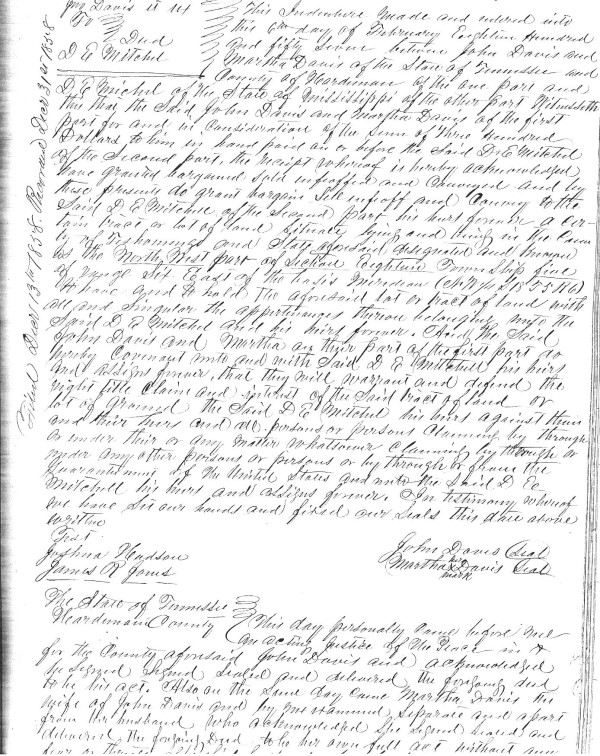 Jno Davis et ux
To
Deed
D E Mitchel
Filed Decr 13th 1858 Recorded Decr 31st 1858
This Indenture Made and entered into
this 6th day of February Eighteen Hundred
and fifty Seven between John Davis and
Martha Davis of the State of Tennessee and
County of Hardiman of the one part and
D. E. Michel of the State of Mississippi of the other part Witnesseth
this that the Said John Davis and Martha Davis of the first
part for and in Consideration of the Sum of Three Hundred
Dollars to him in hand paid on or before the Said D. E Mitchel
of the Second part, the receipt whereof is hereby acknowledged
have granted bargained Sold enfeoffed and Conveyed and by
these presents do grant bargain Sell enfeoff and Convey to the
Said D E Mitchel of the Second Part his heirs forever a cer-
tain tract or lot of land Situate lying and being in the Coun-
ty of Tishomingo and State aforesaid designated and known
as the North West part of Section Eighteen Township five
of range Six East of the basis Meridian
To have and to hold the aforesaid lot or tract of land with
all and Singular the appertinances thereon belonging unto the
Said D. E Mitchel and his heirs forever. And the Said
John Davis and Martha on their part of the first part do
hereby Covenant unto and with Said D E Mitchell his heirs
and assigns forever, that they will warrant and defend the
right title Claim and interest of the Said tract of land or
lot of ground the Said D E Mitchel his heirs against them
and their heirs and all persons or persons Claiming by through
or under their or any Matter Whatsoever Claiming by through or
under any other persons or persons or by through or from the
of the United States and unto the Said D E
Mitchell his heirs and assigns forever. In testimony whereof
We have Set our hands and fixed our Seals this date above
written
Test
Joshua Hudson
James R Jones
John Davis Seal
Martha her mark Davis Seal
The State of Tennessee
Hardeman County
This day personally Came before me
an acting Justice of the Peace in &
for the County aforesaid John Davis and acknowledged
he Signed Sealed and delivered the foregoing deed
to be his act. Also on the Same day Came Martha Davis the
wife of John Davis and by me examined Separate and apart
from her husband who acknowledged She Signed Sealed and
delivered the foregoing Deed to be her own full act without any